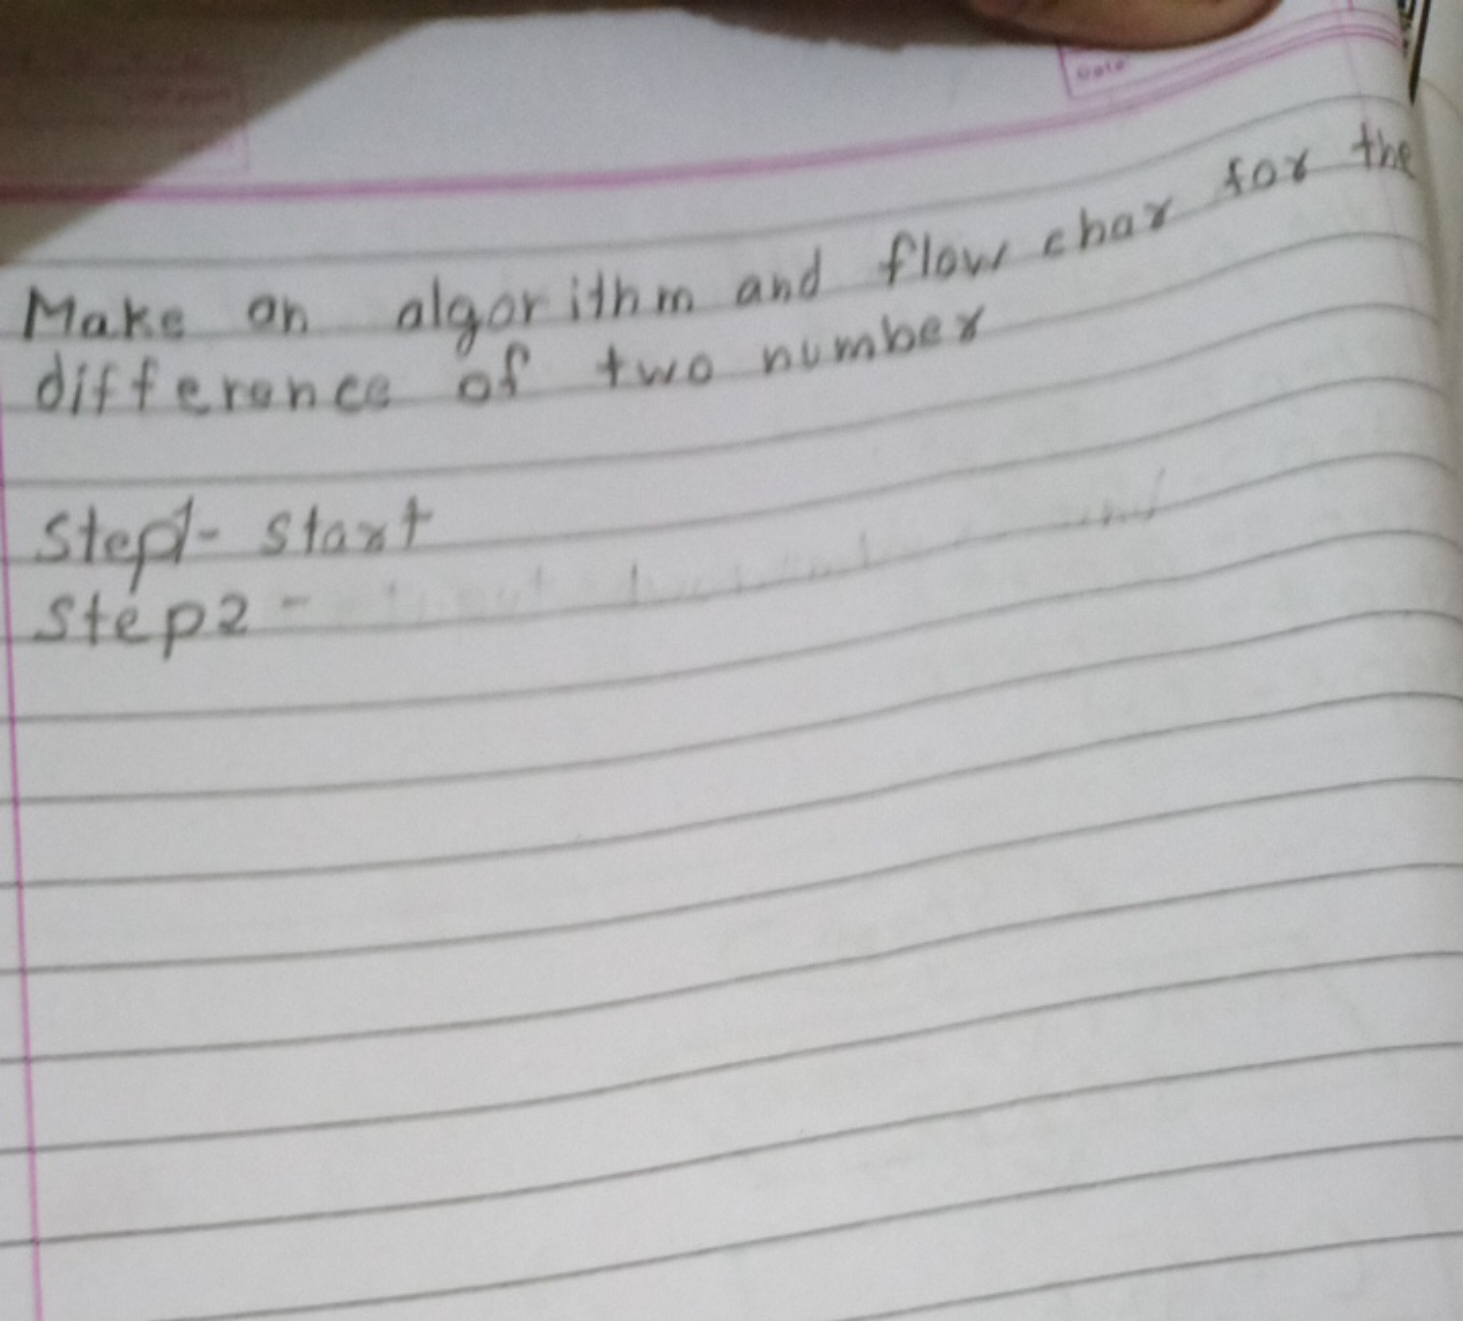 Date
Make an algorithm and flow char for the
difference of two number
Step1- Start
Step2 -